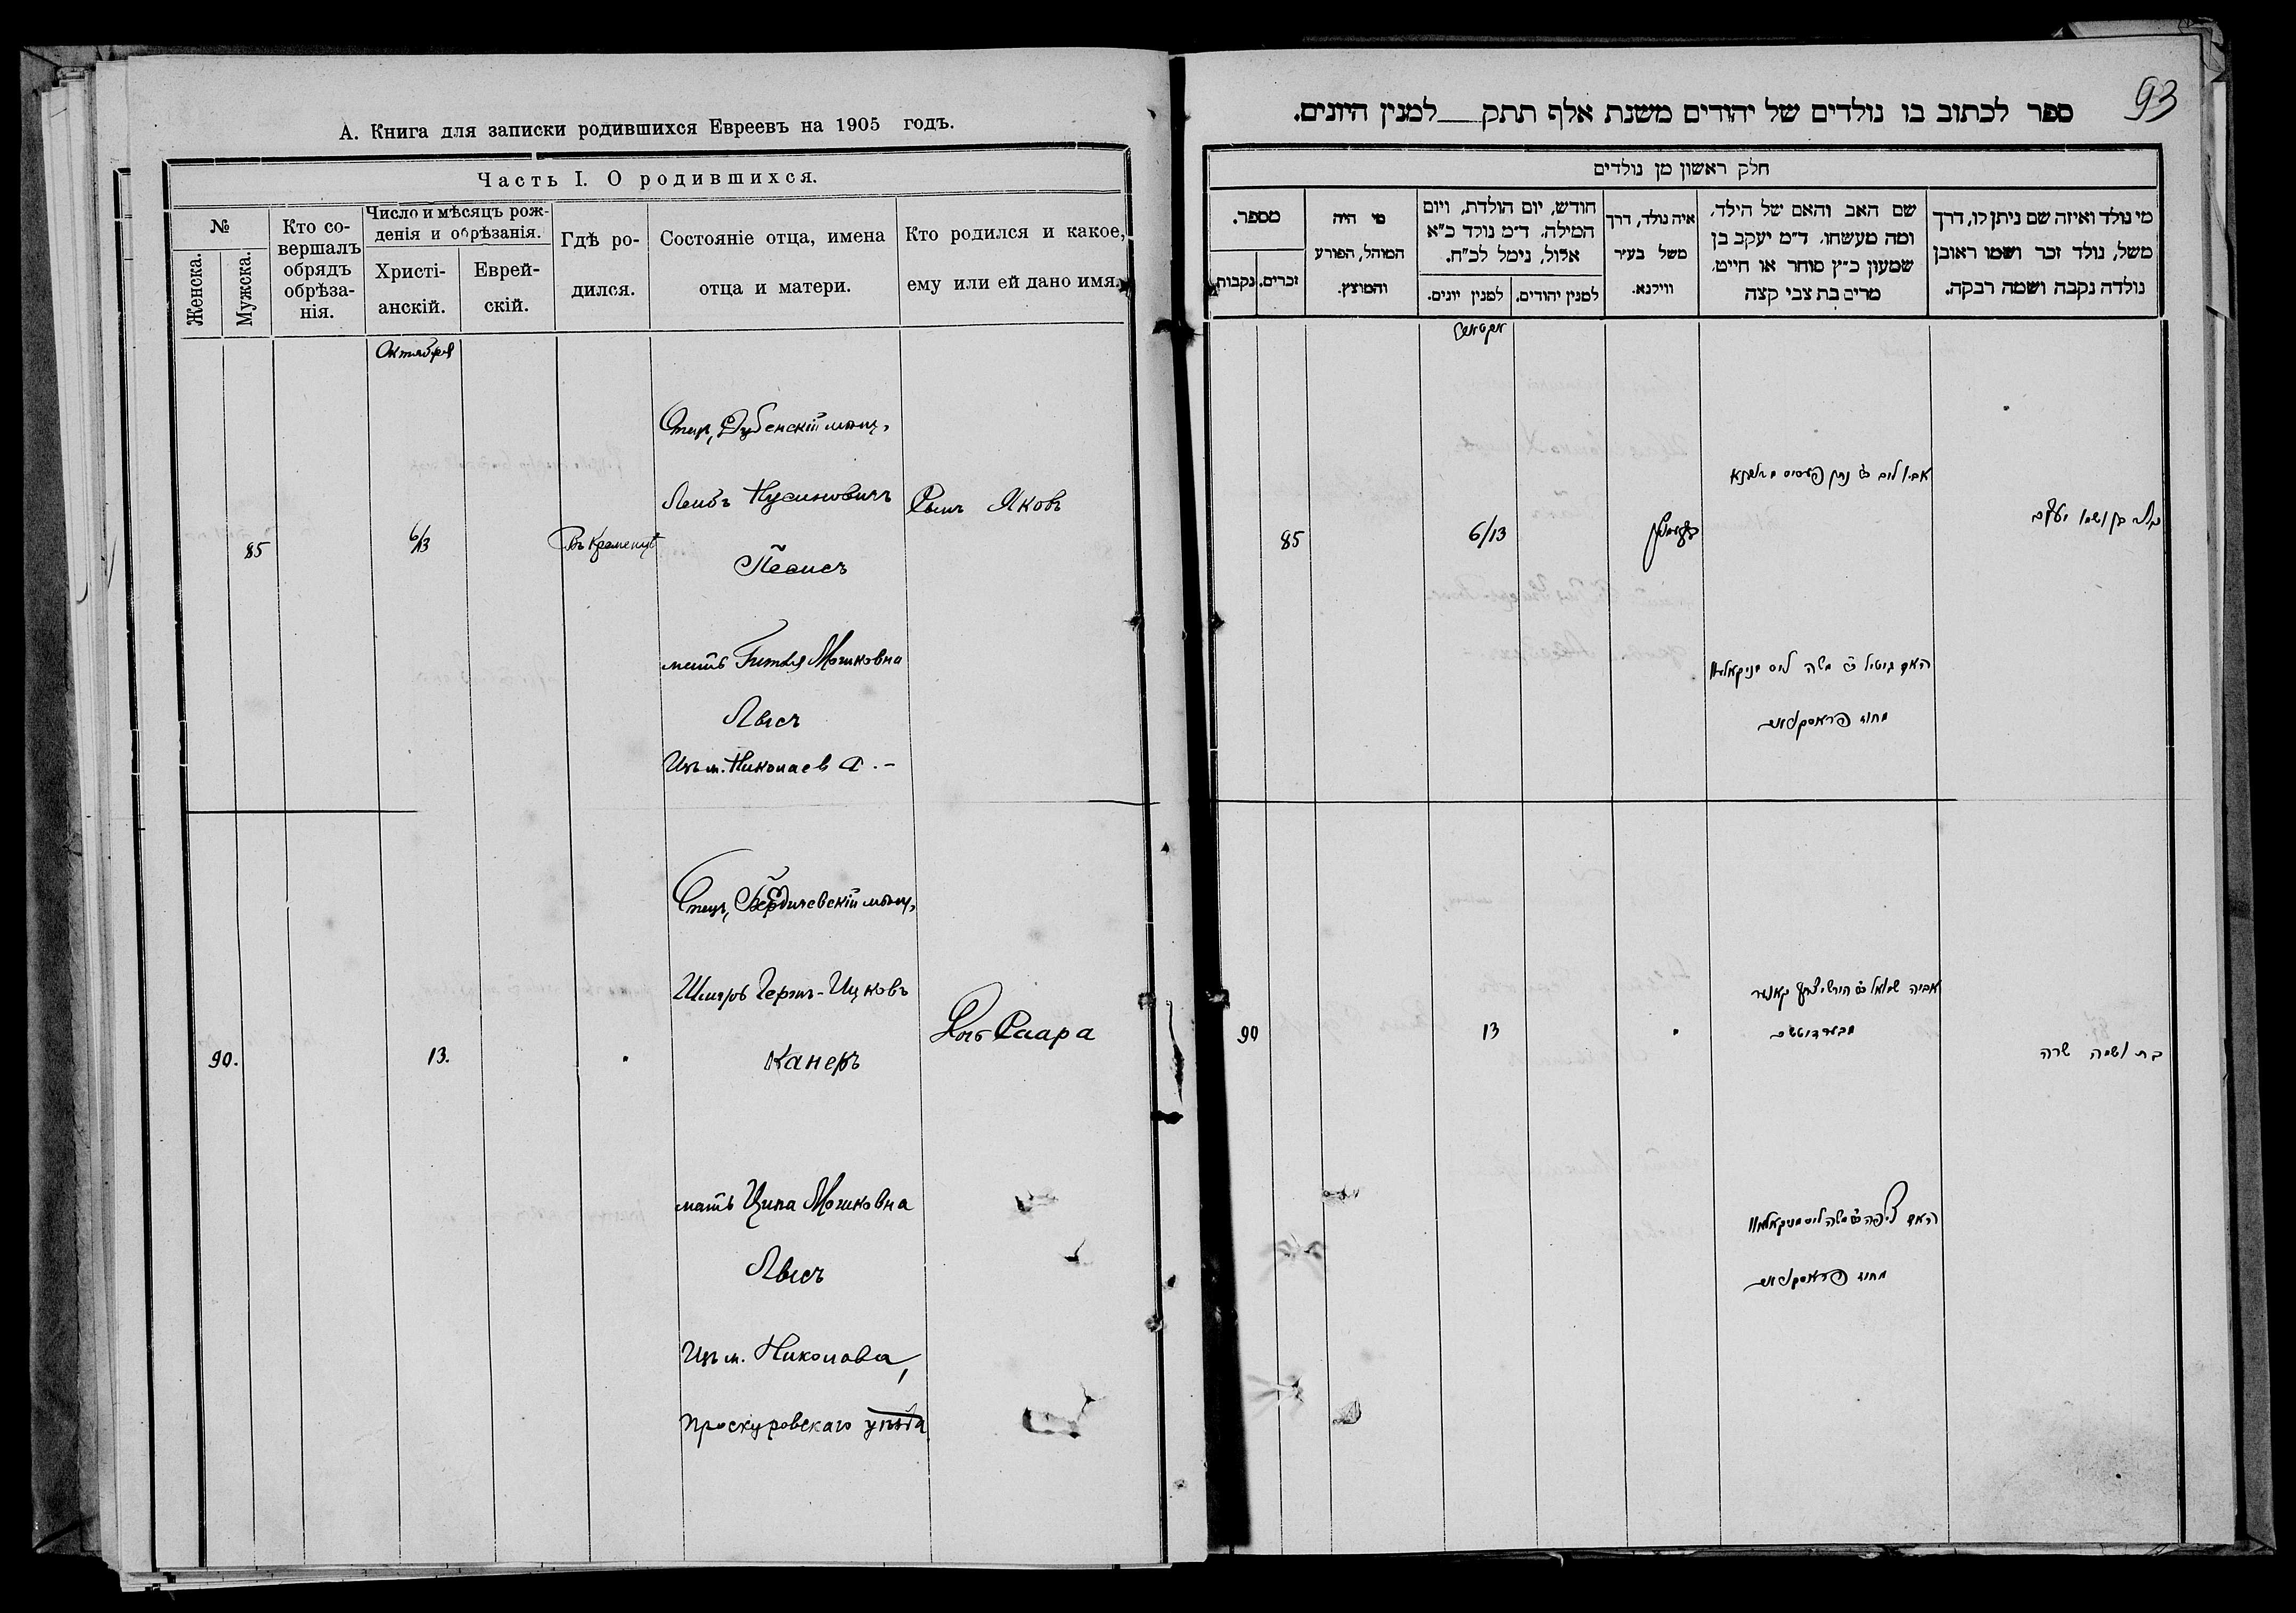 А. Книга для записки родившихся Евреевъ на 1905 годъ.
Часть I. О родившихся.
№
Женска.
Мужска.
Кто со-
вершалъ
обрядъ
обрѣза-
нія.
Число и мѣсяцъ рож-
денія и обрѣзанія.
Христі-
анскій.
Еврей-
скій.
Гдѣ ро-
дился.
Состояніе отца, имена
отца и матери.
Кто родился и какое,
ему или ей дано имя.
Октября
85
6/13
Въ Кременцѣ
Отец, Дубенскій мѣщ.
Лейбъ Нусиновичъ
Песисъ
мать Гитля Мошковна
Лысъ
Изъ м. Николаева.-
Сынъ Яковъ
90.
13.
Отец, Бердичевскій мѣщ.
Шмуль Герш-Ицковъ
Канеръ
мать Ципа Мошковна
Лысъ
Изъ м. Николаева,
Проскуровскаго уѣзда
Дочь Саара
93
ספר לכתוב בו נולדים של יהודים משנת אלף תתק__למנין היונים.
חלק ראשון מן נולדים
מספר.
נקבות
זכרים.
מי היה
המוהל, הפורע
והמוצץ.
חודש, יום הולדת, ויום
המילה. ד״מ נולד כ״א
אלול, נימל לכ״ח.
למנין יונים.
למנין יהודים.
איה נולד, דרך
משל בעיר
ווילנא.
שם האב והאם של הילד,
ומה מעשהו. ד״מ יעקב בן
שמעון כ״ץ סוחר או חייט,
מרים בת צבי קצה
מי נולד ואיזה שם ניתן לו, דרך
משל, נולד זכר ושמו ראובן
נולדה נקבה ושמה רבקה.
85
6/13
האם גיטל משה ליס
מחוז פראסקוראוו
90
13
אביה שמואל הירש קאנער
האם ציפה משה ליס
מחוז פראסקוראוו
בת ושמה שרה